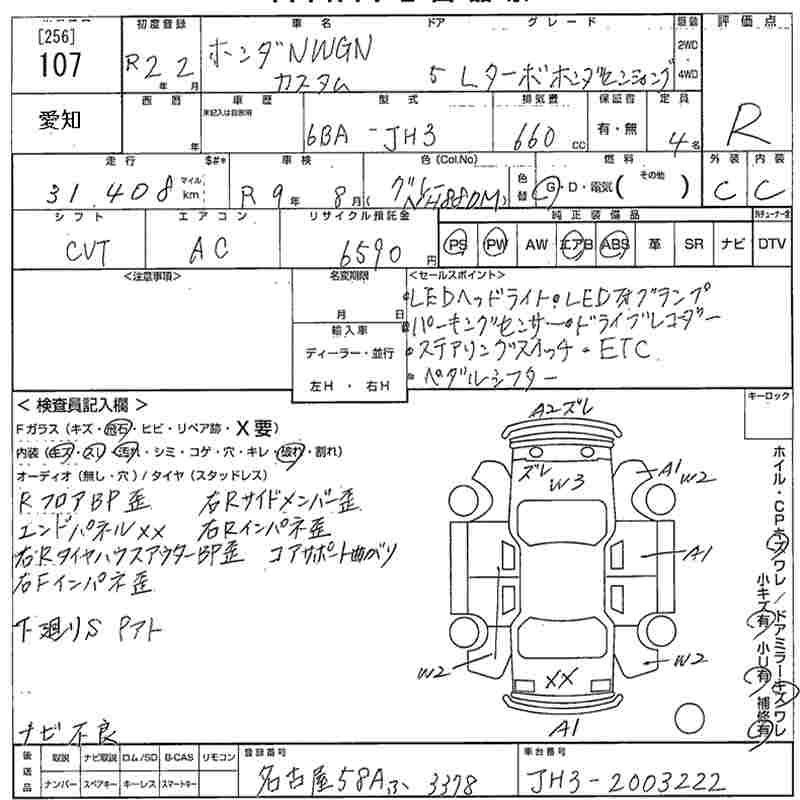 [256]
107
初度登録
R2 年 2 月
車名
ホンダNWGN
カスタム
ドア
5
グレード
Lターボホンダセンシング
2WD
4WD
評価点
R
愛知
西暦
年
車歴
未記入は自家用
型式
6BA - JH3
排気量
660 cc
保証書
有・無
定員
4名
走行
31,408
マイル
km
$#*
車検
R9年8月
色(Col.No)
グレー
(NH880M)
色替
燃料
G・D・電気(その他)
外装
C
内装
C
シフト
CVT
エアコン
AC
リサイクル預託金
6590円
純正装備品
PS PW AW エアB ABS 革 SR ナビ DTV
<注意事項>
名変期限
月 日
輸入車
ディーラー・並行
左H・右H
<セールスポイント>
・LEDヘッドライト・LEDフォグランプ
・パーキングセンサー・ドライブレコダー
・ステアリングスイッチ・ETC
・ペダルシフター
キーロック
<検査員記入欄>
Fガラス(キズ・飛石・ヒビ・リペア跡・X要)
内装(キズ・スレ・汚れ・シミ・コゲ・穴・キレ・破れ・割れ)
オーディオ(無し・穴)/タイヤ(スタッドレス)
RフロアBP歪 右Rサイドメンバー歪
エンドパネルXX 右Rインパネ歪
右RタイヤハウスアウターBP歪 コアサポート曲がり
右Fインパネ歪
下廻りS Pアト
ナビ不良
A2ズレ
ズレ
W3
A1
W2
A1
W2
W2
XX
A1
ホイル・CPキズワレ/ドアミラーキズワレ
小キズ有 小U有 補修有
後送品
取説 ナビ取説 ロム/SD B-CAS リモコン
ナンバー スペアキー キーレス スマートキー
登録番号
名古屋58Aふ 3378
車台番号
JH3-2003222